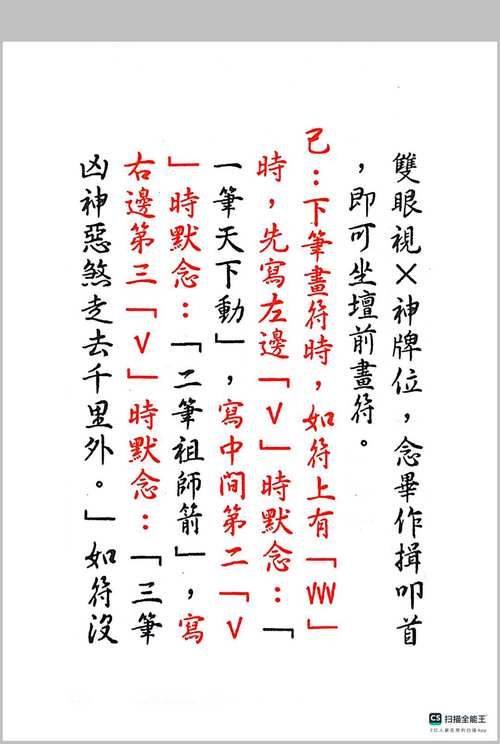 雙眼視×神牌位，念畢作揖叩首
，即可坐壇前畫符。
己：下筆畫符時，如符上有「VVV」
時，先寫左邊「V」時默念：「
一筆天下動」，寫中間第二「V
」時默念：「二筆祖師箭」，寫
右邊第三「V」時默念：「三筆
凶神惡煞走去千里外。」如符沒
CS 扫描全能王
3亿人都在用的扫描App